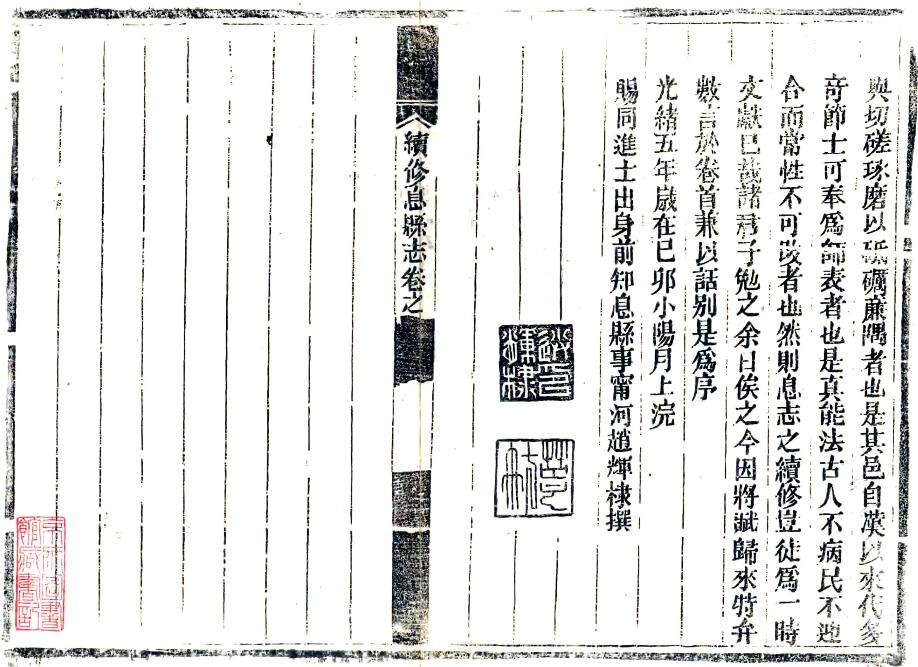 與切磋琢磨以砥礪廉隅者也是其邑自漢以來代多
奇節士可奉爲師表者也是真能法古人不病民不
合而常性不可改者也然則息志之續修豈徒爲一時
文獻已哉諸君子勉之余日俟之今因將賦歸來特弁
數言於卷首兼以話別是爲序
光緒五年歲在己卯小陽月上浣
賜同進士出身前知息縣事甯河趙輝棣撰
續修息縣志卷之